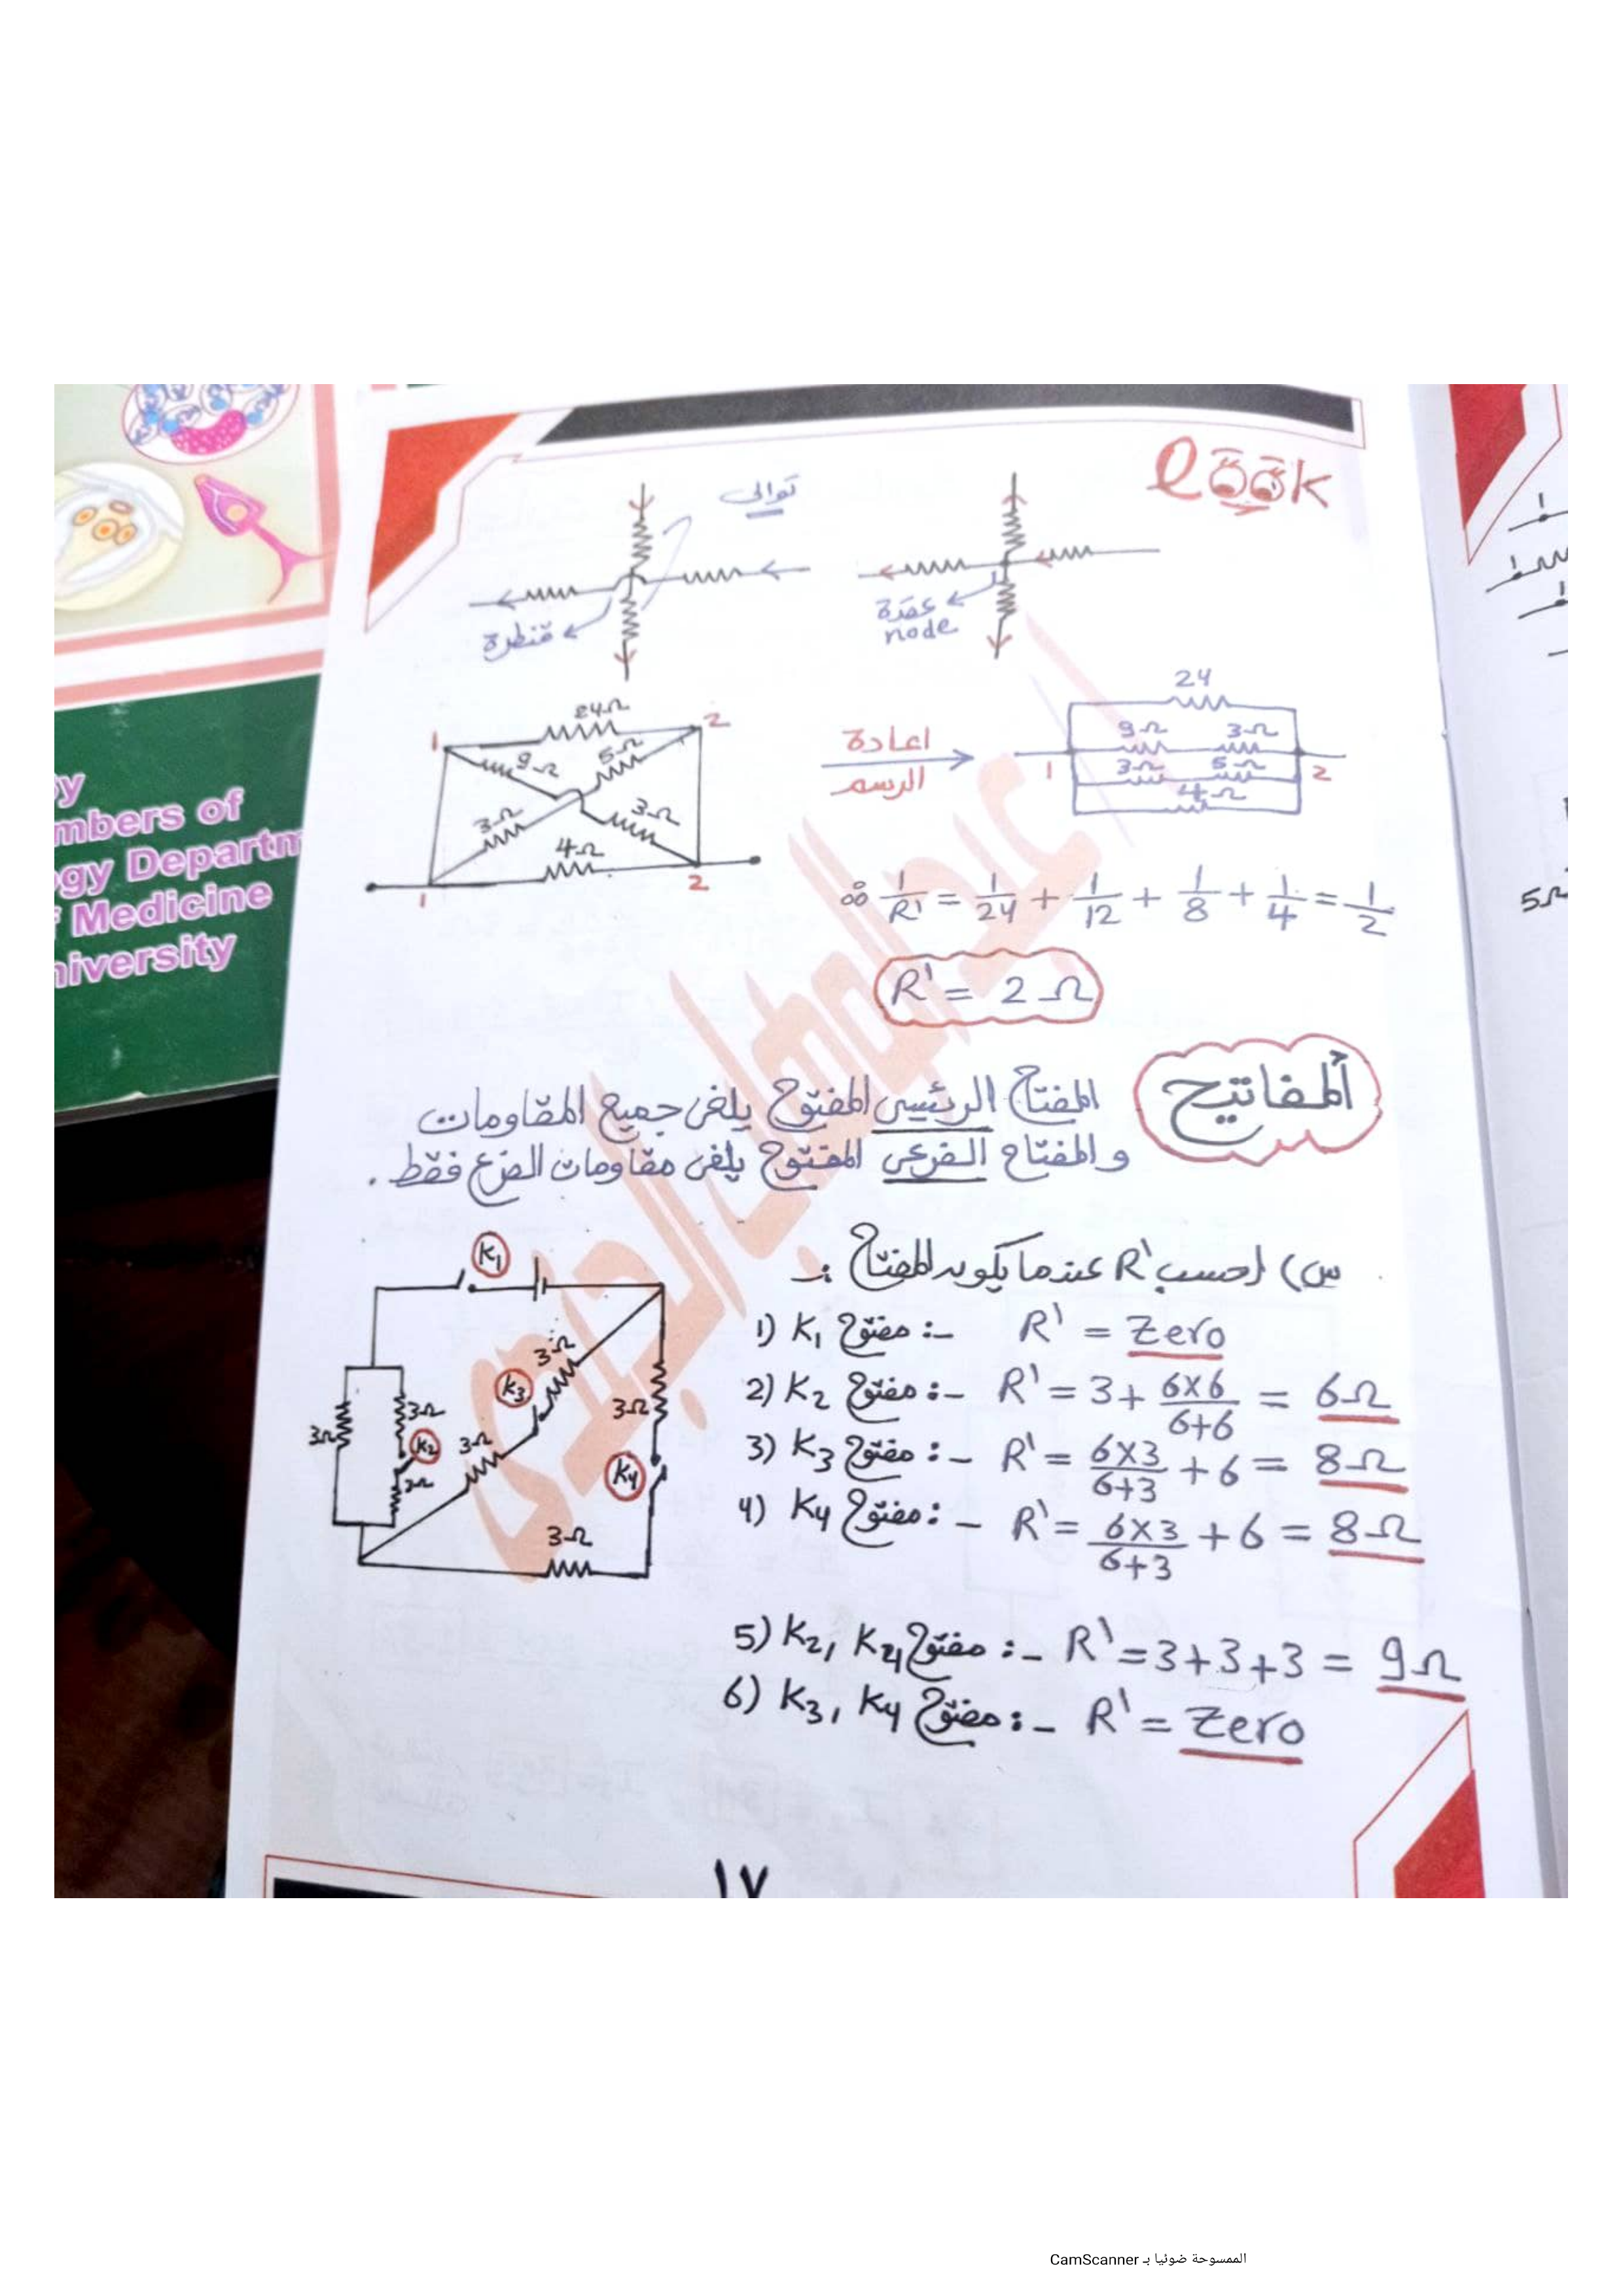 look
توالى
قنطرة
عقدة
node
24Ω
1
2
9Ω
5Ω
3Ω
3Ω
4Ω
1
2
اعادة
الرسم
24
9Ω 3Ω
1
3Ω 5Ω
2
4Ω
∴ 1/R' = 1/24 + 1/12 + 1/8 + 1/4 = 1/2
R' = 2Ω
المفاتيح
المفتاح الرئيسى المفتوح يلغى جميع المقاومات
والمفتاح الفرعى المفتوح يلغى مقاومات الفرع فقط .
س) احسب R' عندما يكون المفتاح :-
K1
3Ω
K3
3Ω
3Ω
K2
3Ω
3Ω
3Ω
K4
3Ω
3Ω
1) K1 مفتوح :- R' = Zero
2) K2 مفتوح :- R' = 3 + 6×6/6+6 = 6Ω
3) K3 مفتوح :- R' = 6×3/6+3 + 6 = 8Ω
4) K4 مفتوح :- R' = 6×3/6+3 + 6 = 8Ω
5) K2, K4 مفتوح :- R' = 3+3+3 = 9Ω
6) K3, K4 مفتوح :- R' = Zero
١٧
y
mbers of
gy Departm
f Medicine
niversity
5Ω
الممسوحة ضوئيا بـ CamScanner